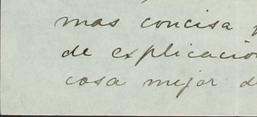 mas concisa
de explicacio
cosa mejor d